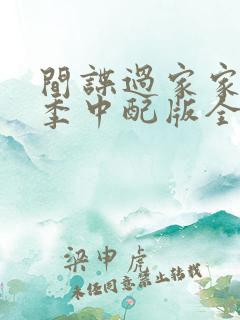 間諜過家家
季中配版全
梁申虎
未经同意禁止转载